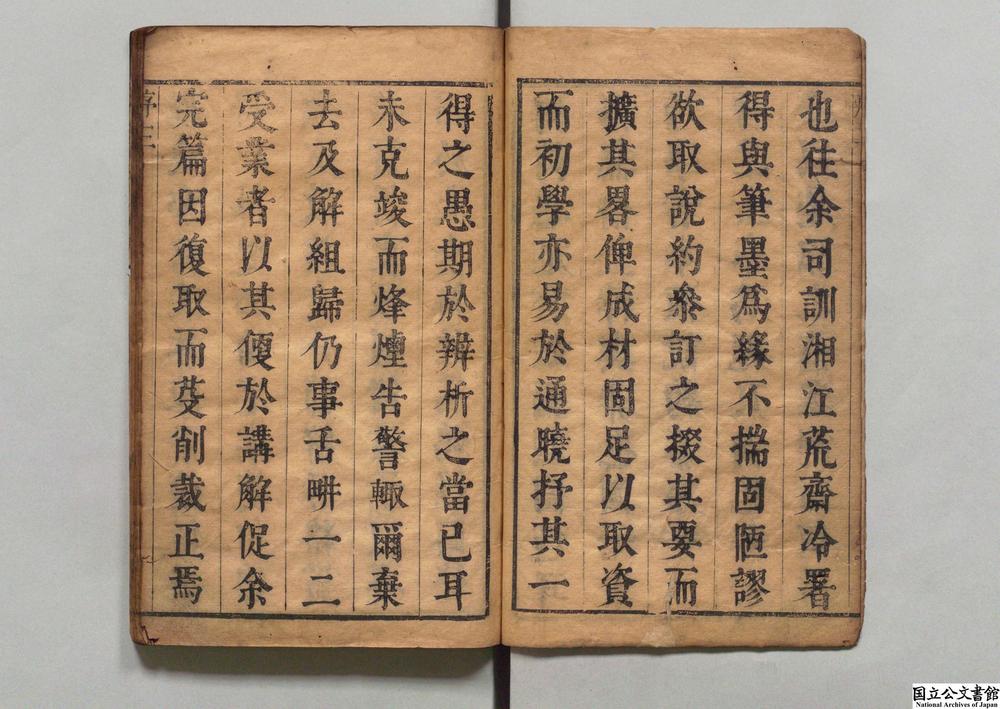 也往余司訓湘江荒齋冷署
得與筆墨爲緣不揣固陋謬
欲取說約叅訂之掇其要而
擴其畧俾成材固足以取資
而初學亦易於通曉抒其一
得之愚期於辨析之當已耳
未克竣而烽煙告警輙爾棄
去及解組歸仍事舌畊一二
受業者以其便於講解促余
完篇因復取而芟削裁正焉
序三
国立公文書館
National Archives of Japan